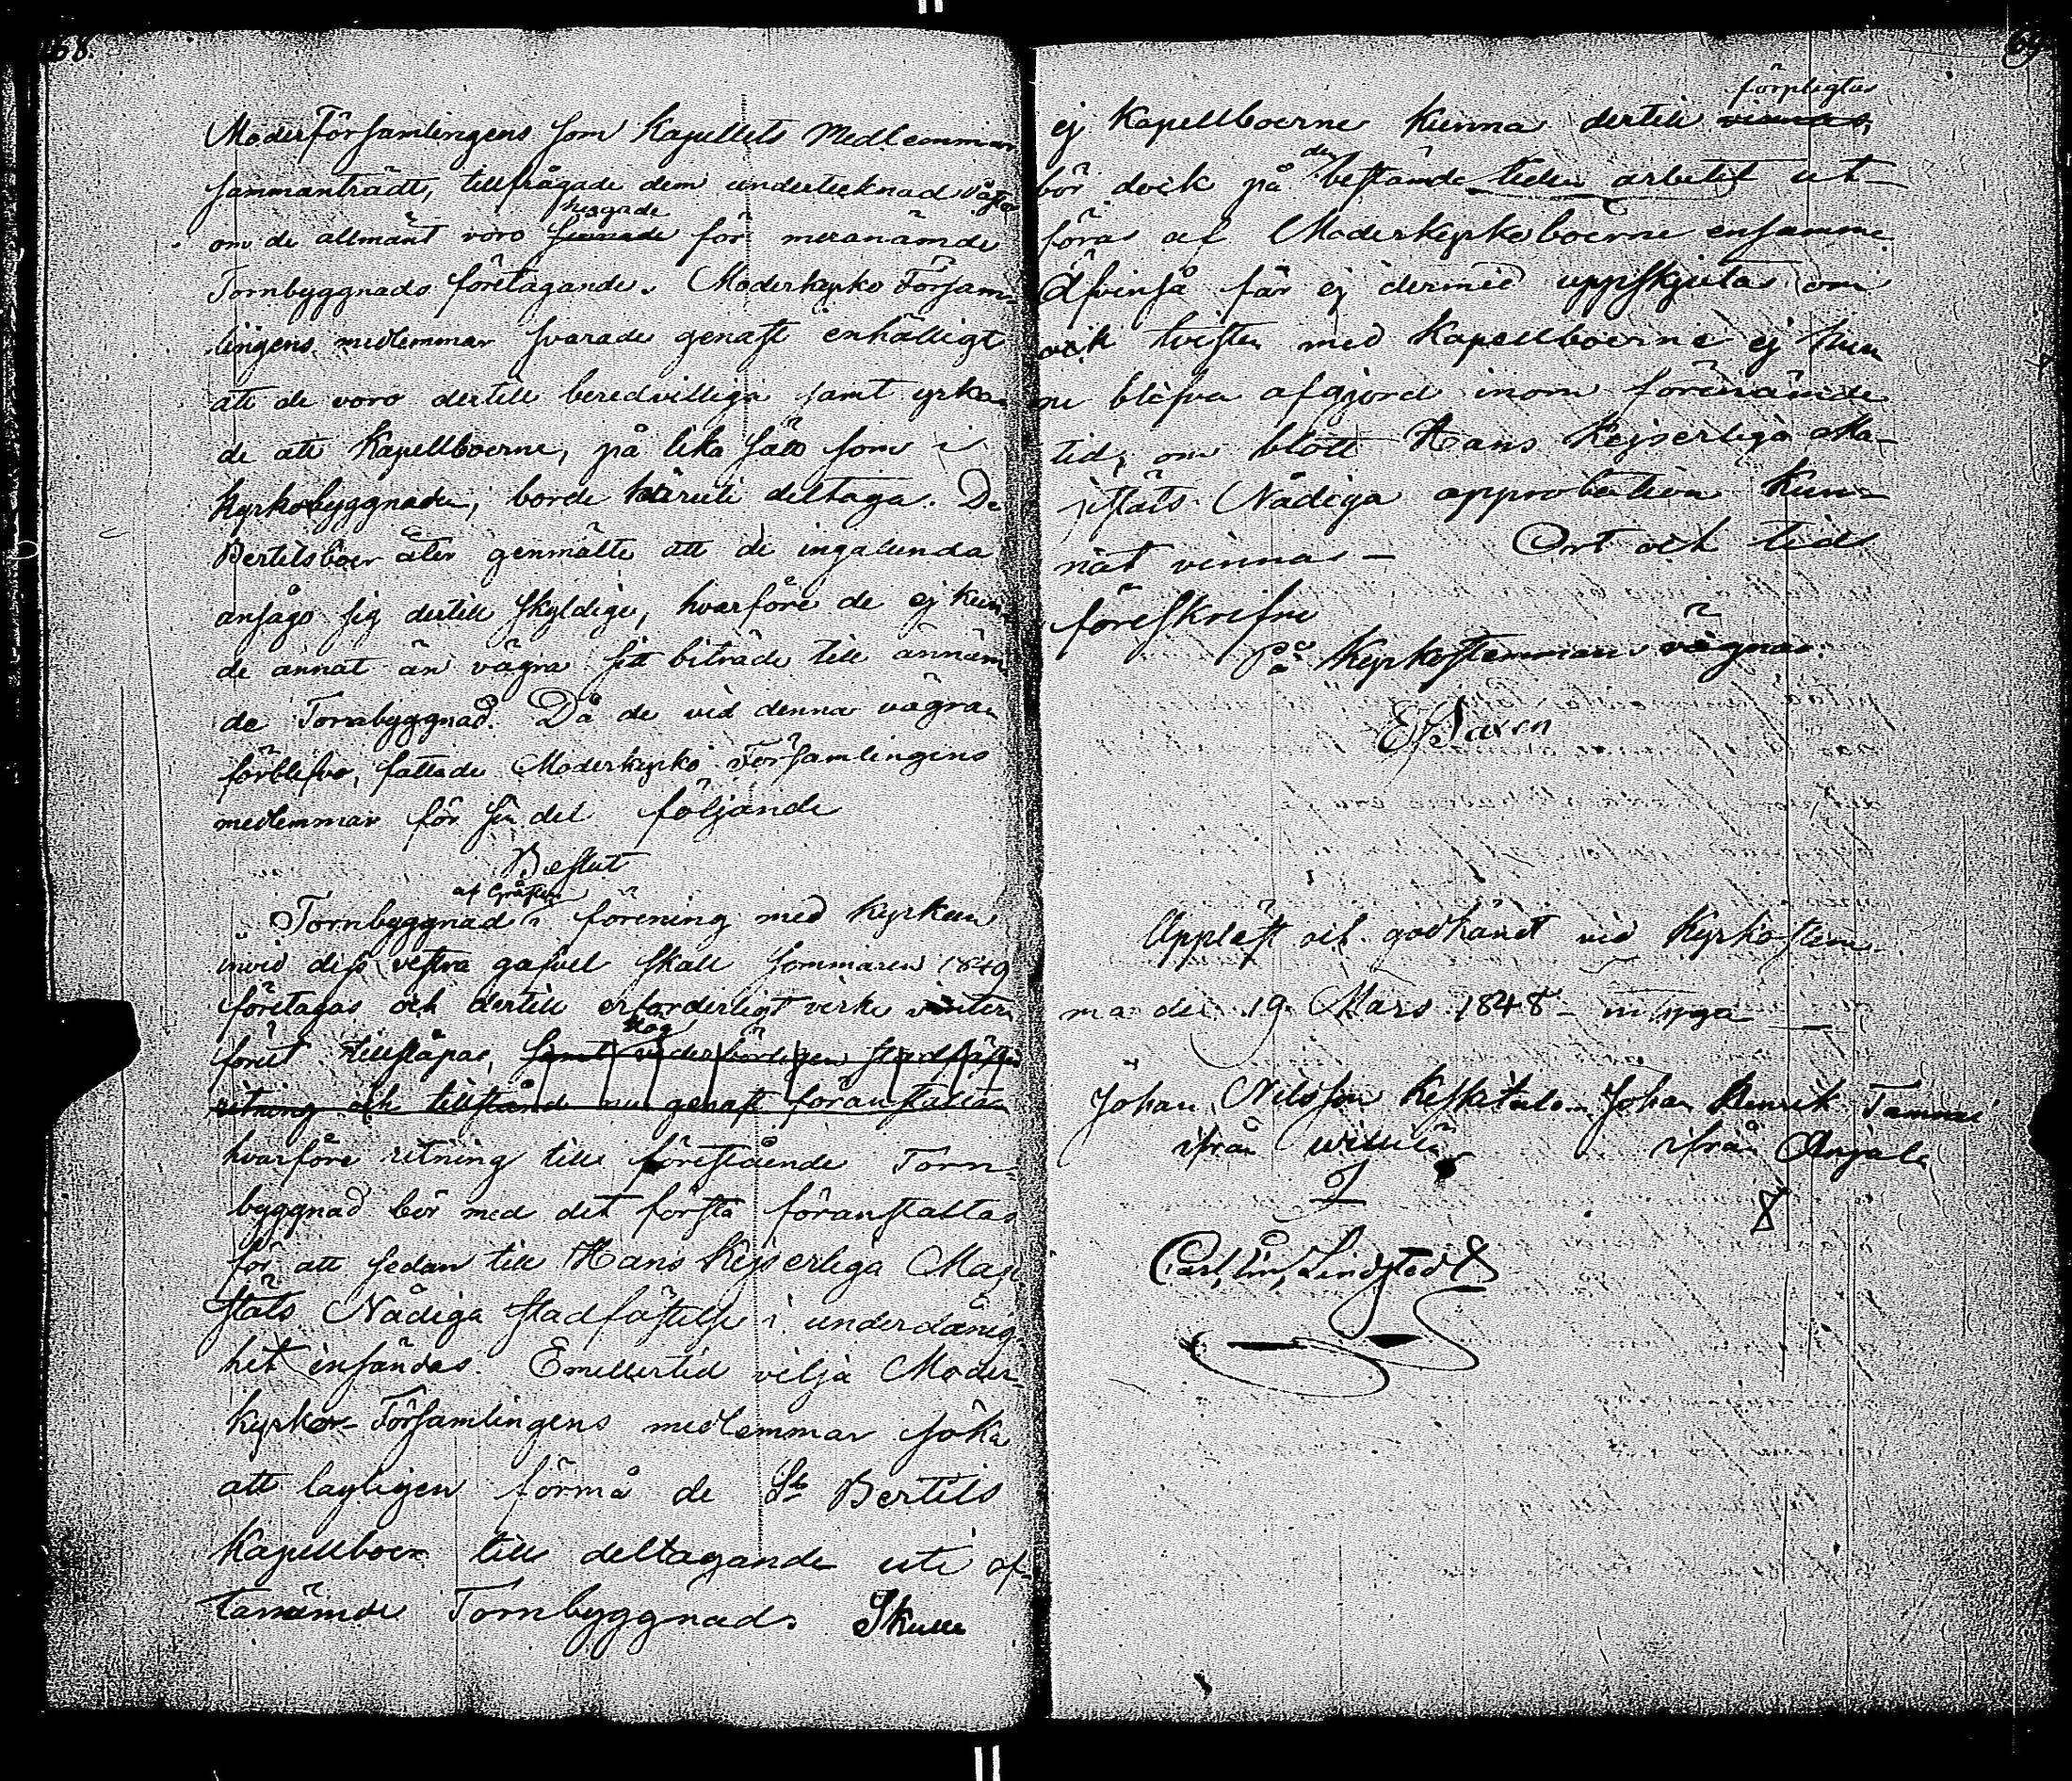 68.
ModerFörsamlingens som Kapellets Medlemmar
sammanträdt, tillfrågade dem undertecknad
hugade
om de allmänt voro sinnade för meranämde
Tornbyggnads företagande. Moderkyrko Försam-
lingens medlemmar svarade genast enhälligt
att de voro dertill beredvilliga samt yrka-
de att Kapellboerne, på lika sätt som i
Kyrkobyggnaden, borde häruti deltaga. De
Bertilsboer åter genmälte att de ingalunda
ansågo sig dertill skyldige, hvarföre de ej kun-
de annat än vägra sitt biträde till annäm-
de Tornbyggnad. Då de vid denna vägran
förblefvo, fattade Moderkyrko Församlingens
medlemmar för sin del följande
Beslut
af Gråsten
Tornbyggnad i förening med Kyrkan
invid dess vestra gafvel skall Sommaren 1849
företagas och dertill erforderligt virke vinter-
föret tillsläpas, samt vederbörligen stadfästad
ritning och tillstånd nu genast föranstaltas
hvarföre ritning till förestående Torn-
byggnad bör med det första föranstaltas
för att sedan till Hans Kejserliga Maje
stäts Nådiga stadfästelse i underdånig-
het insändas. Emellertid vilja Moder-
kyrko-Församlingens medlemmar söka
att lagligen förmå de St Bertils
Kapellboer till deltagande uti of-
tanämde Tornbyggnad. Skulle
69.
förpligtas
ej Kapellboerne kunna dertill vinnas,
den
bör dock på bestämde tiden arbetet ut-
föras af Moderkyrkoboerne ensamme.
Äfvenså får ej dermed uppskjutas om
ock tvisten med Kapellboerne ej hun
ne blefva afgjord inom förenämde
tid, om blott Hans Kejserliga Ma-
jestäts Nådiga approbation kun-
nat vinnas – Ort och tid
föreskrifne
På Kyrkostemmans vägnar.
E Saxen
Uppläst och godkänet vid Kyrkostem
ma den 19 Mars 1848 – intyga
Johan Nilsson Keskitalo Johan Henrik Tammi
ifrån ifrån Anjala
Carl Lin, Lindstedt